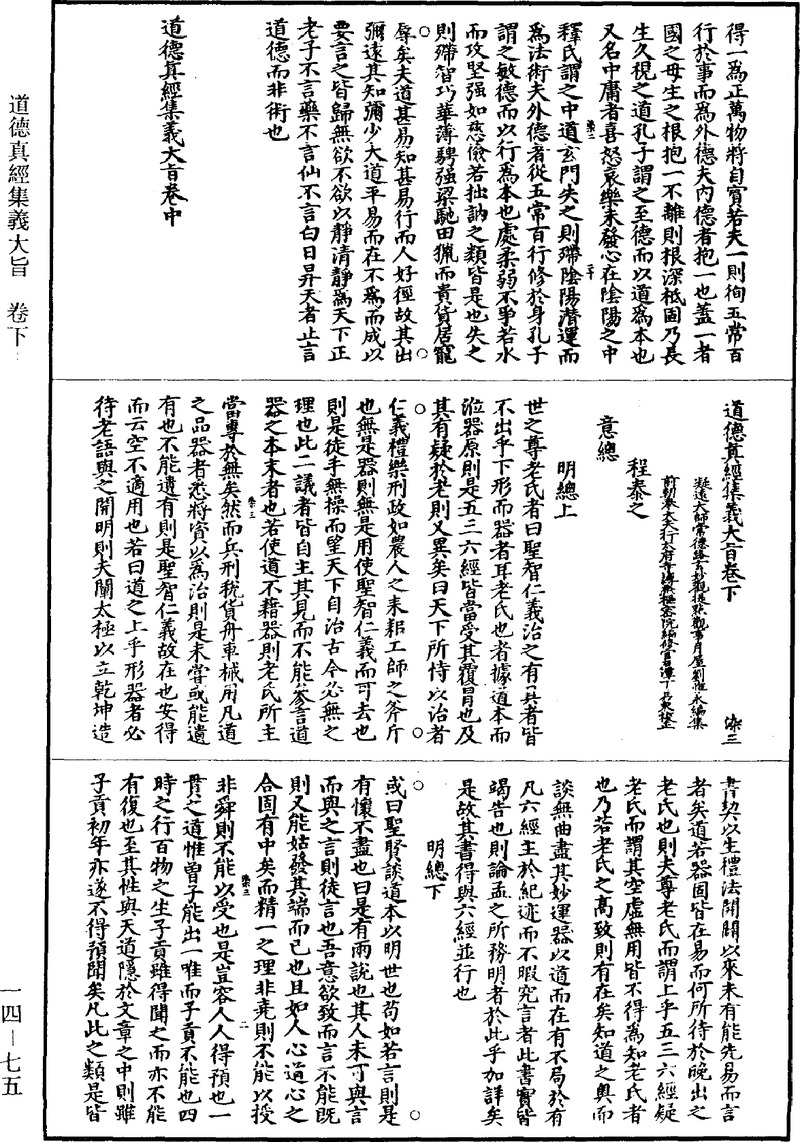 得一爲正萬物將自賓若夫一則徇五常百
行於事而爲外德夫内德者抱一也蓋一者
國之母生之根抱一不離則根深柢固乃長
生久視之道孔子謂之至德而以道爲本也
又名中庸者喜怒哀樂未發心在陰陽之中
釋氏謂之中道玄門失之則殢陰陽潜運而
爲法術夫外德者從五常百行修於身孔子
謂之敏德而以行爲本也處柔弱不爭若水
而攻堅强如慈儉若拙訥之類皆是也失之
則殢智巧華薄騁强梁馳田獵而貴貨居寵
辱矣夫道甚易知甚易行而人好徑故其出
彌遠其知彌少大道平易而在不爲而成以
要言之皆歸無欲不欲以靜清靜爲天下正
老子不言藥不言仙不言白日昇天者止言
道德而非術也
道德真經集義大旨卷中
道德真經集義大旨卷下
染三
凝遠大師常德路玄妙觀提點觀事劉惟永編集
前朝奉大夫太府寺簿兼樞密院編修官丁易東校正
程泰之
意總
明總上
世之尊老氏者曰聖智仁義治之有具者皆
不出乎下形而器者耳老氏也者據道本而
涖器原則是五三六經皆當受其覆冒也及
其有疑於老則又異矣曰天下所恃以治者
仁義禮樂刑政如農人之耒耜工師之斧斤
也無是器則無是用使聖智仁義而可去也
則是徒手無操而望天下自治古今必無之
理也此二議者皆自主其見而不能參言道
器之本末者也若使道不藉器則老氏所主
當專於無矣然而兵刑稅貨舟車械用凡道
之品器者悉將資以爲治則是未嘗或能遺
有也不能遺有則是聖智仁義故在也安得
而云空不適用也若曰道之上乎形器者必
待老語與之開明則夫闡太極以立乾坤造
書契以生禮法開闢以來未有能先易而言
者矣道若器固皆在易而何所待於晚出之
老氏也則夫尊老氏而謂上乎五三六經疑
老氏而謂其空虚無用皆不得爲知老氏者
也乃若老氏之高致則有在矣知道之奥而
談無曲盡其妙運器以道而在有不局於有
凡六經主於紀迹而不暇究言者此書實皆
竭告也則論孟之所務明者於此乎加詳矣
是故其書得與六經並行也
明總下
或曰聖賢談道本以明世也苟如若言則是
有懷不盡也曰是有兩說也其人未可與言
而與之言則徒言也吾意欲致而言不能既
則又能姑發其端而已也且如人心道心之
合固有中矣而精一之理非堯則不能以授
非舜則不能以受也是豈容人人得預也一
貫之道惟曾子能出一唯而子貢不能也四
時之行百物之生子貢雖得聞之而亦不能
有復也至其性與天道隱於文章之中則雖
子貢初年亦遂不得預聞矣凡此之類是皆
道德真經集義大旨　卷下
一四—七五